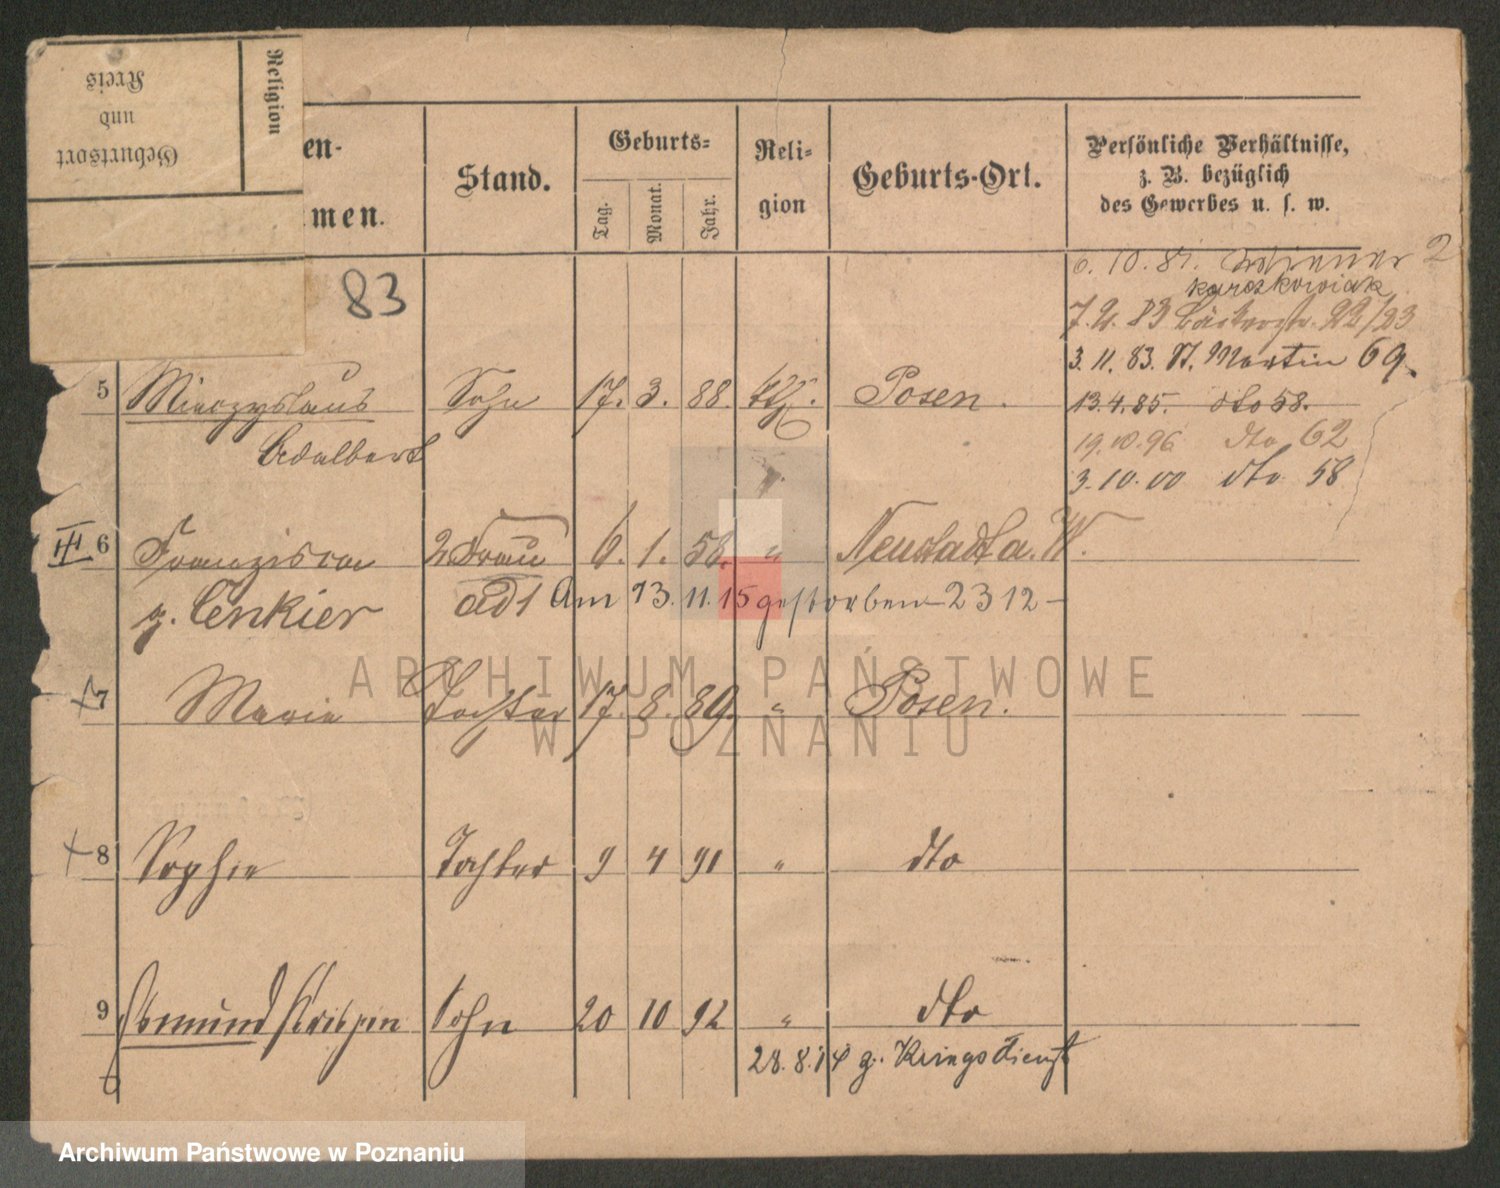 Religion
Geburtsort
und
Kreis
en-
men.
Stand.
Geburts-
Tag.
Monat.
Jahr.
Reli-
gion
Geburts-Ort.
Persönliche Verhältnisse,
z. B. bezüglich
des Gewerbes u. s. w.
83
6.10.81. 2
Karczkowiak
22/23
3.11.83. St. Martin 69.
5 Mieczyslaus Sohn 17. 3. 88. Posen. 13.4.85. dto 58.
Adalbert
19.10.96 dto 62
3.10.00 dto 58
III 6 Franziska 2. Frau 6. 1. 58. " Neustadt a. W.
g. Cenkier Am 13. 11. 15 gestorben – 2312 –
7 Marie Tochter 17. 8. 89. " Posen.
8 Sophie Tochter 9 4 91 " dto
9 Osmund Krispin Sohn 20 10 92 " dto
28.8.14 z. Kriegsdienst
ARCHIWUM PAŃSTWOWE
W POZNANIU
Archiwum Państwowe w Poznaniu